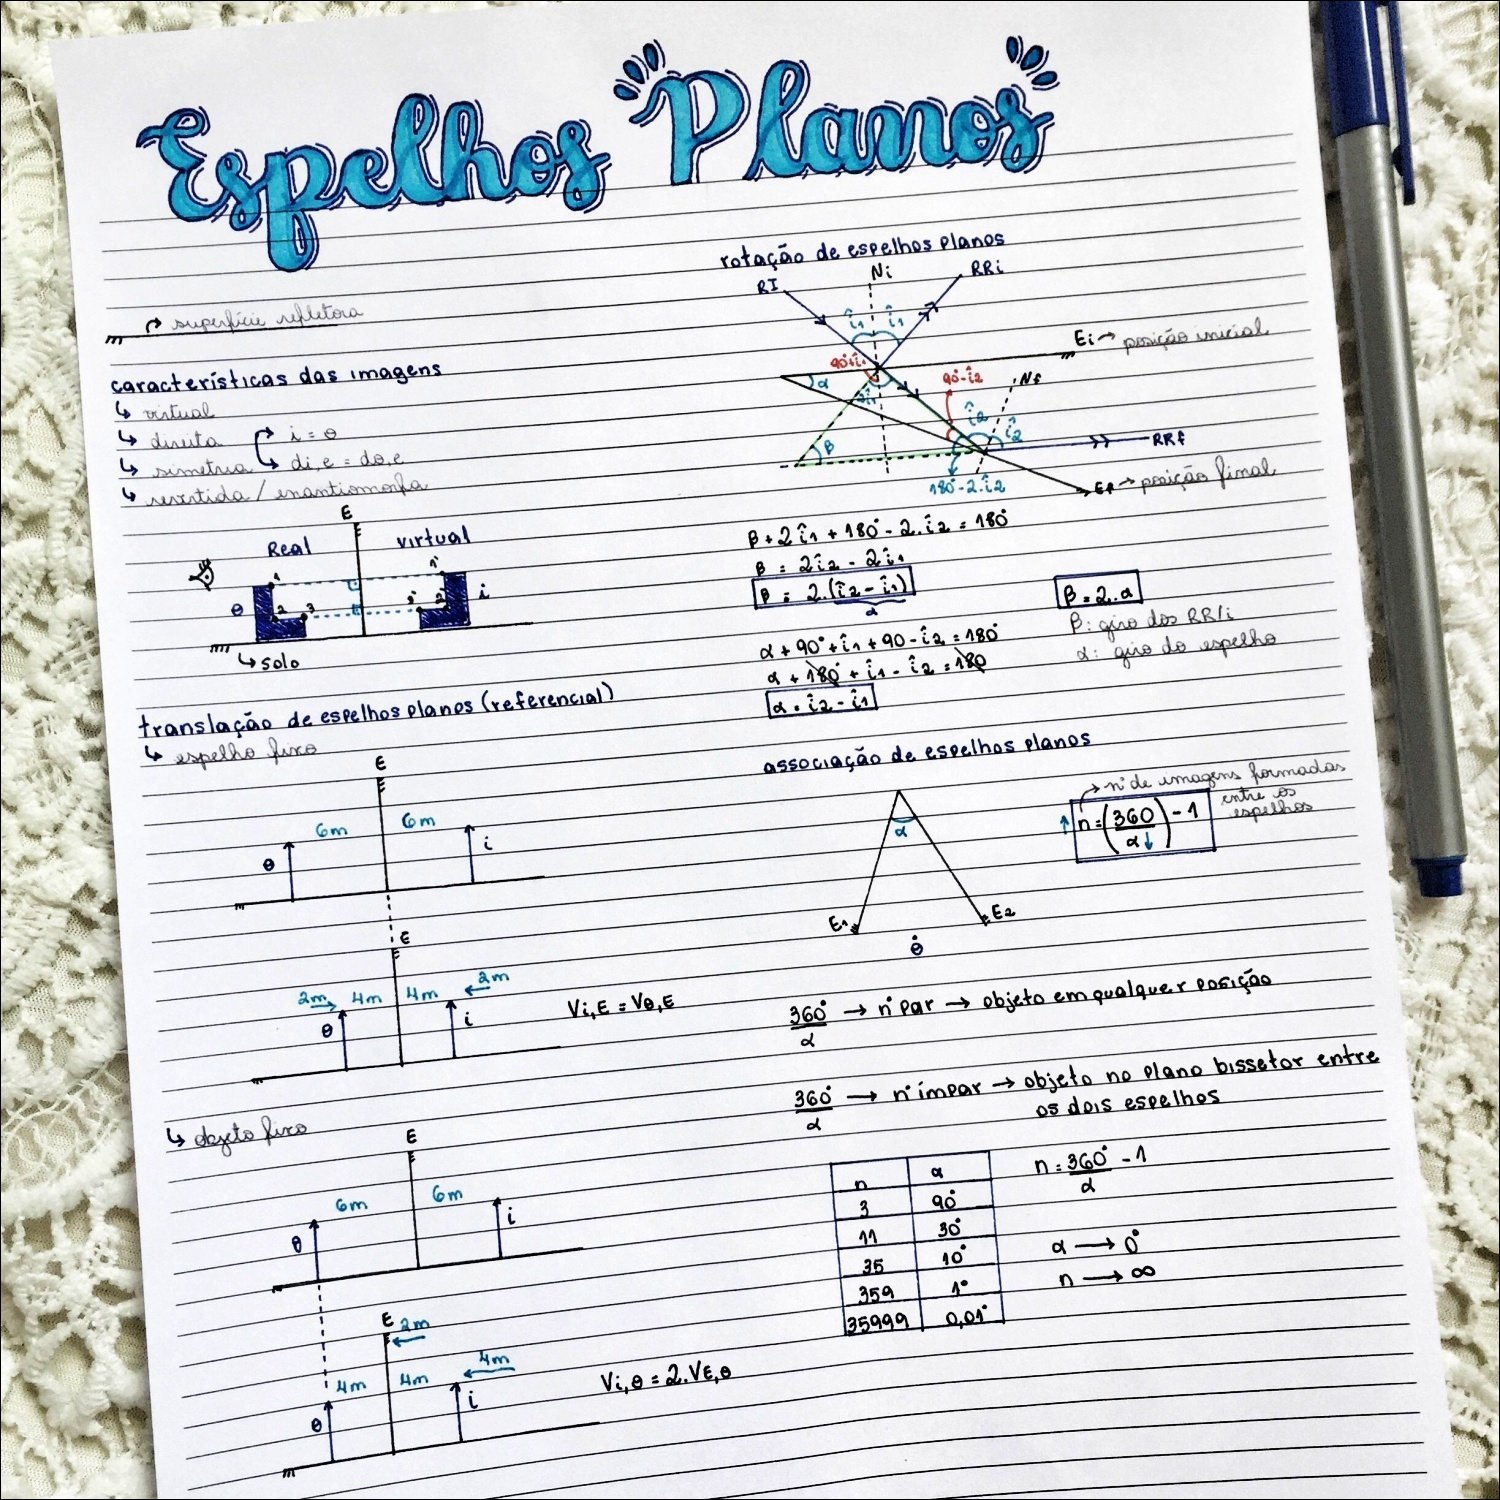 Espelhos Planos
superfície refletora
características das imagens
↳ virtual
↳ direita
↳ simetria
i = θ
di,e = do,e
↳ revertida / enantiomorfa
E
Real
virtual
1
1'
θ
2
3
3'
2'
i
↳ solo
translação de espelhos planos (referencial)
↳ espelho fixo
E
6m
6m
θ
i
E
2m
4m
4m
2m
θ
i
Vi,E = Vθ,E
↳ objeto fixo
E
6m
6m
θ
i
E
2m
4m
4m
4m
θ
i
Vi,θ = 2.VE,θ
rotação de espelhos planos
RI
Ni
RRi
î1
î1
Ei → posição inicial
90+î1
α
2î1
90-î2
Nf
î2
î2
β
RRf
180-2.î2
Ef → posição final
β + 2î1 + 180° - 2.î2 = 180°
β = 2î2 - 2î1
β = 2.(î2 - î1)
α
α + 90° + î1 + 90 - î2 = 180°
α + 180° + î1 - î2 = 180
α = î2 - î1
β = 2.α
β: giro dos RR/i
α: giro do espelho
associação de espelhos planos
α
E1
E2
θ
n° de imagens formadas
entre os
espelhos
↑ n = (360/α↓) - 1
360°/α → n° par → objeto em qualquer posição
360°/α → n° ímpar → objeto no plano bissetor entre
os dois espelhos
n α
3 90°
11 30°
35 10°
359 1°
35999 0,01°
n = 360°/α - 1
α → 0°
n → ∞